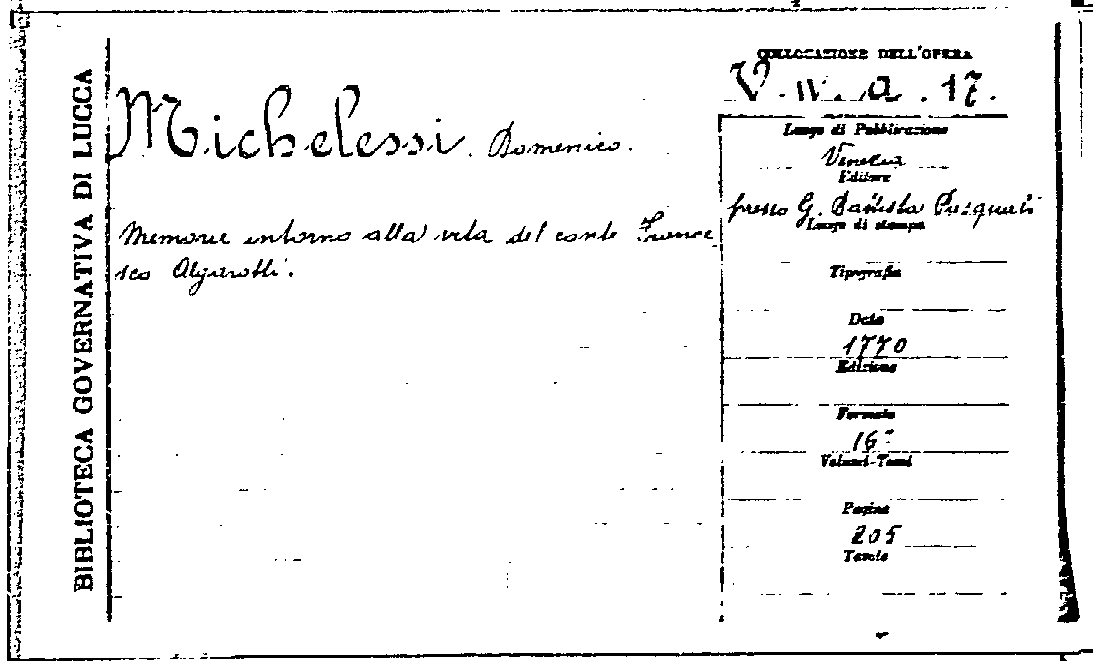 BIBLIOTECA GOVERNATIVA DI LUCCA
Michelessi. Domenico.
Memorie intorno alla vita del conte France
sco Algarotti.
COLLOCAZIONE DELL'OPERA
V. w. a. 17.
Luogo di Pubblicazione
Venezia
Editore
presso G. Battista Pasquali
Luogo di stampa
Tipografia
Data
1770
Edizione
Formato
16°
Volumi-Tomi
Pagine
205
Tavole